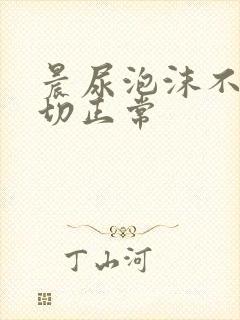 晨尿泡沫不
切正常
丁山河